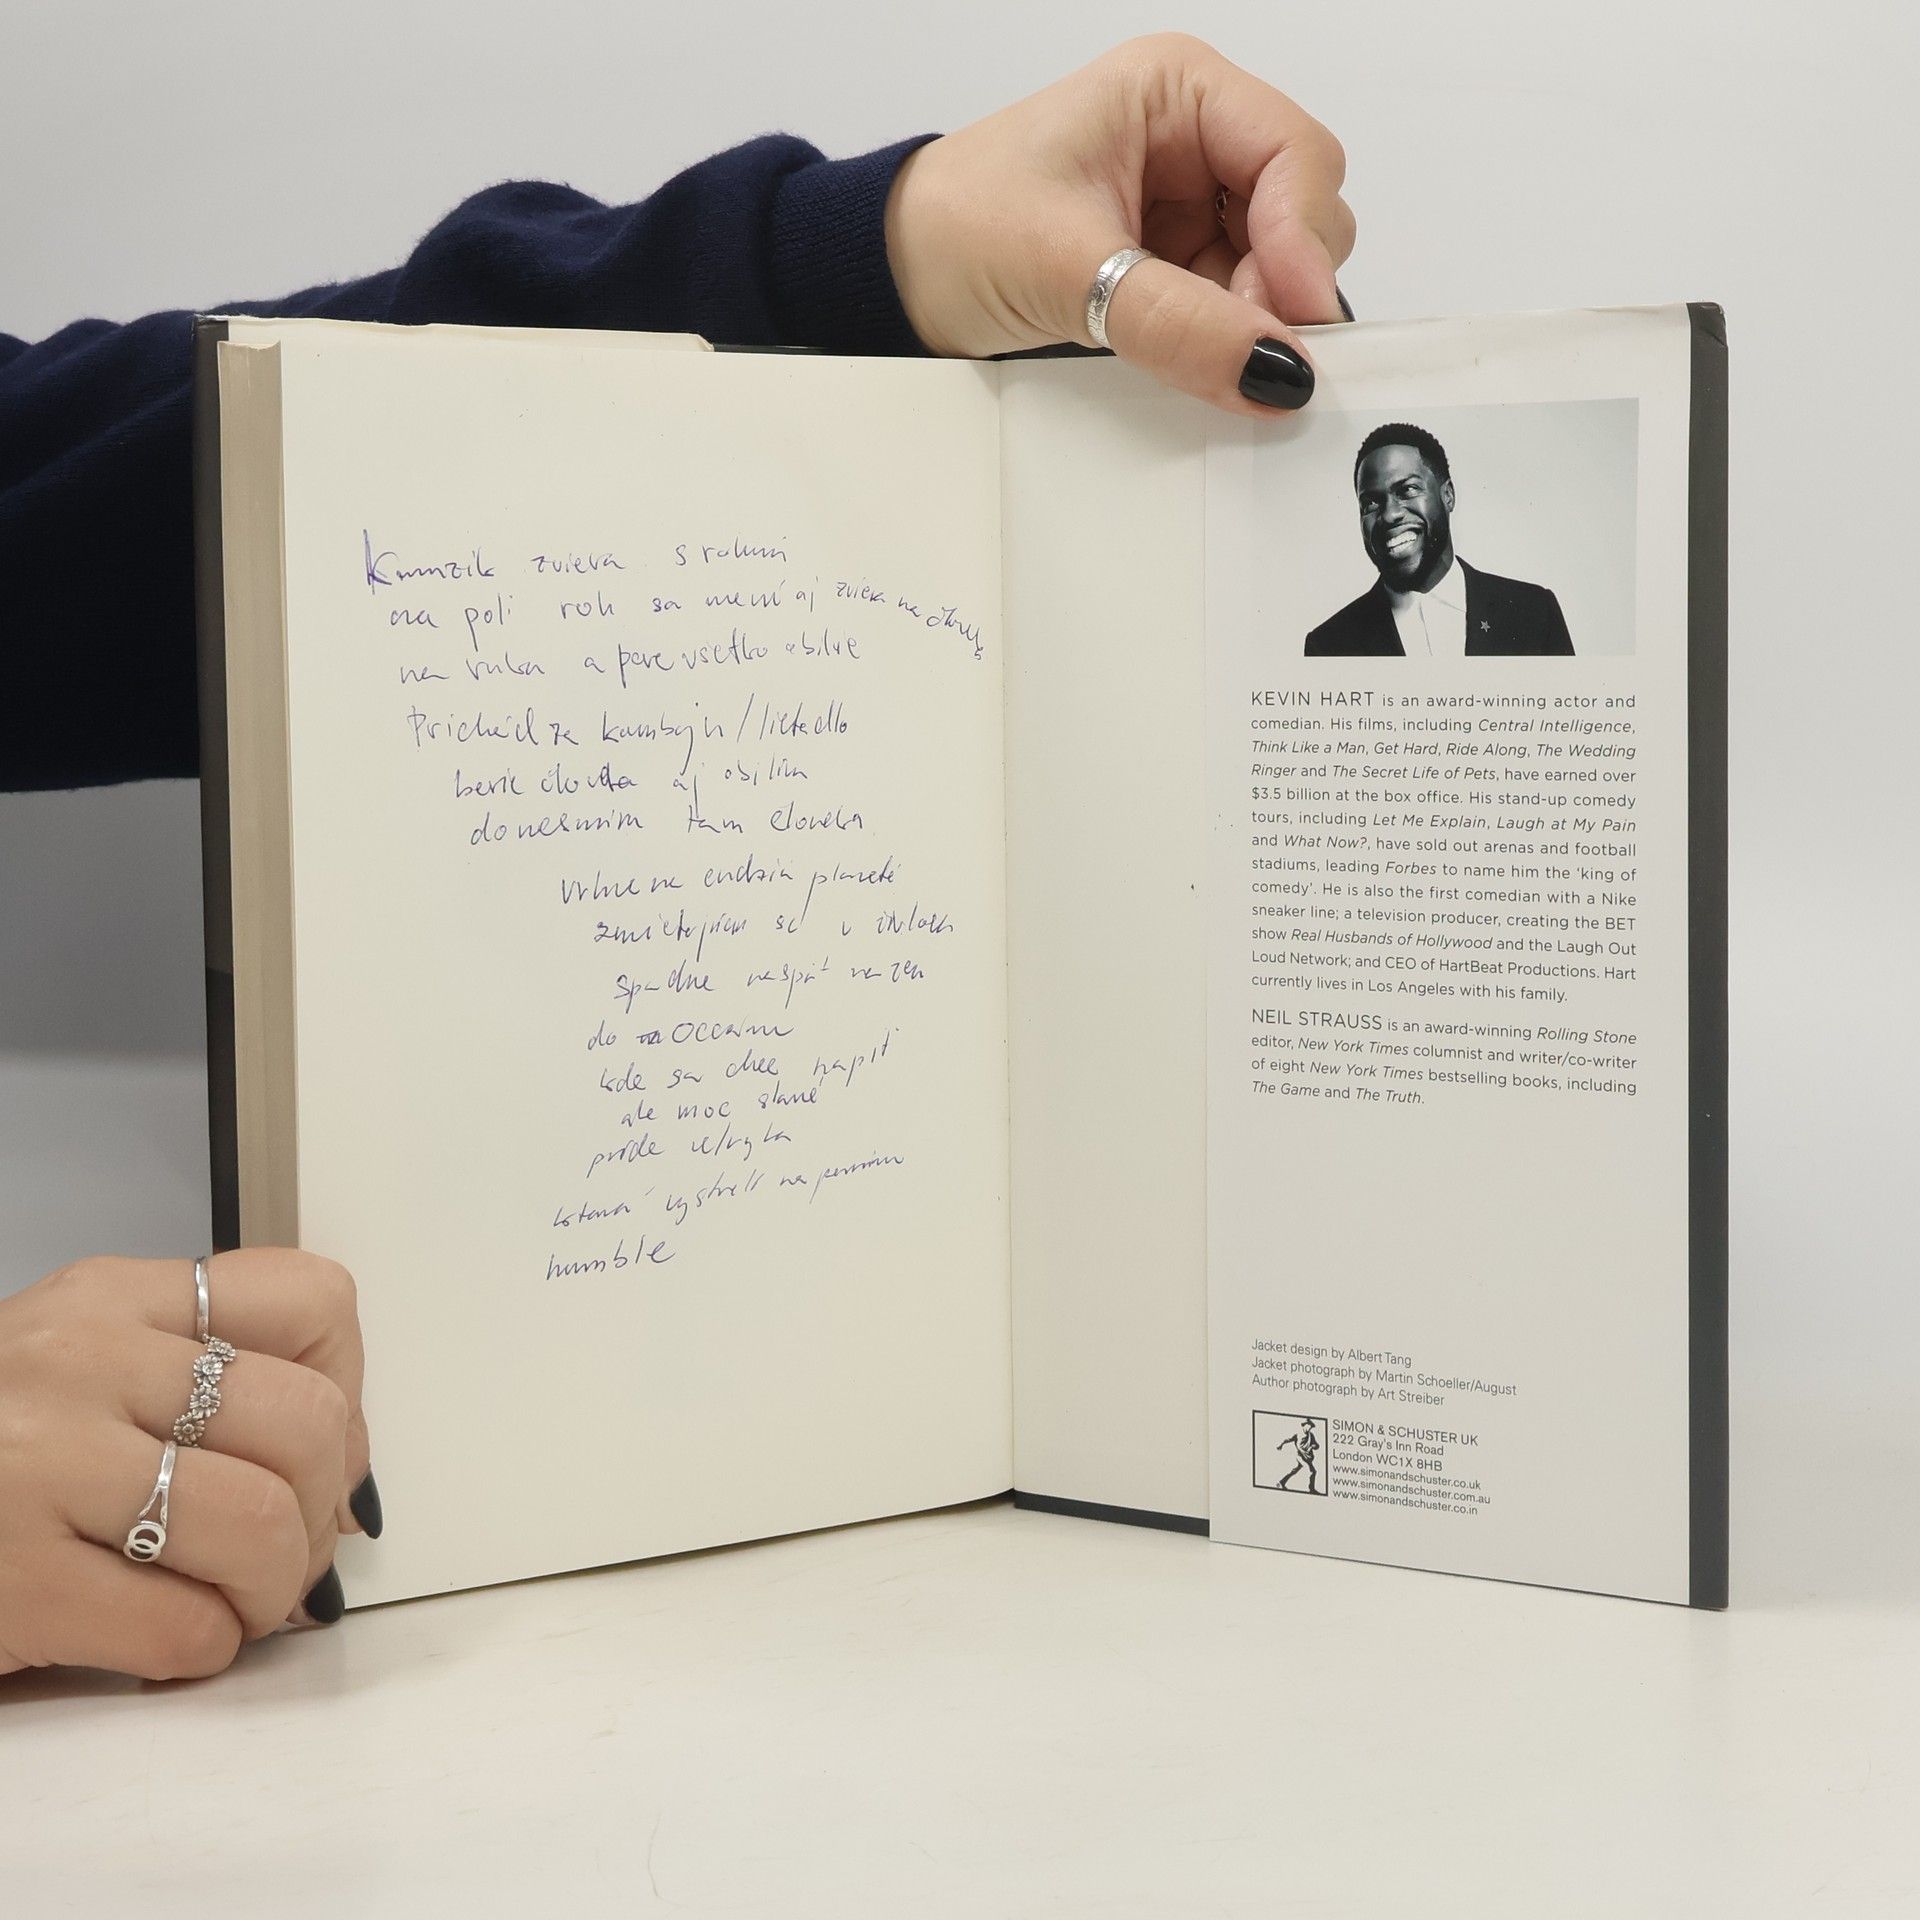 Kamzík zviera s rohmi
na poli roh sa mení aj zviera na
na ruka a pere všetko obilie
Prichádza kombajn / lietadlo
berie aj obilím
tam človeka
na planéte
v
spadne naspäť na zem
do Oceánu
kde sa chce napiť
ale moc slané
príde veľryba
ktorá vystrelí na
humble
KEVIN HART is an award-winning actor and
comedian. His films, including Central Intelligence,
Think Like a Man, Get Hard, Ride Along, The Wedding
Ringer and The Secret Life of Pets, have earned over
$3.5 billion at the box office. His stand-up comedy
tours, including Let Me Explain, Laugh at My Pain
and What Now?, have sold out arenas and football
stadiums, leading Forbes to name him the ‘king of
comedy’. He is also the first comedian with a Nike
sneaker line; a television producer, creating the BET
show Real Husbands of Hollywood and the Laugh Out
Loud Network; and CEO of HartBeat Productions. Hart
currently lives in Los Angeles with his family.
NEIL STRAUSS is an award-winning Rolling Stone
editor, New York Times columnist and writer/co-writer
of eight New York Times bestselling books, including
The Game and The Truth.
Jacket design by Albert Tang
Jacket photograph by Martin Schoeller/August
Author photograph by Art Streiber
SIMON & SCHUSTER UK
222 Gray's Inn Road
London WC1X 8HB
www.simonandschuster.co.uk
www.simonandschuster.com.au
www.simonandschuster.co.in